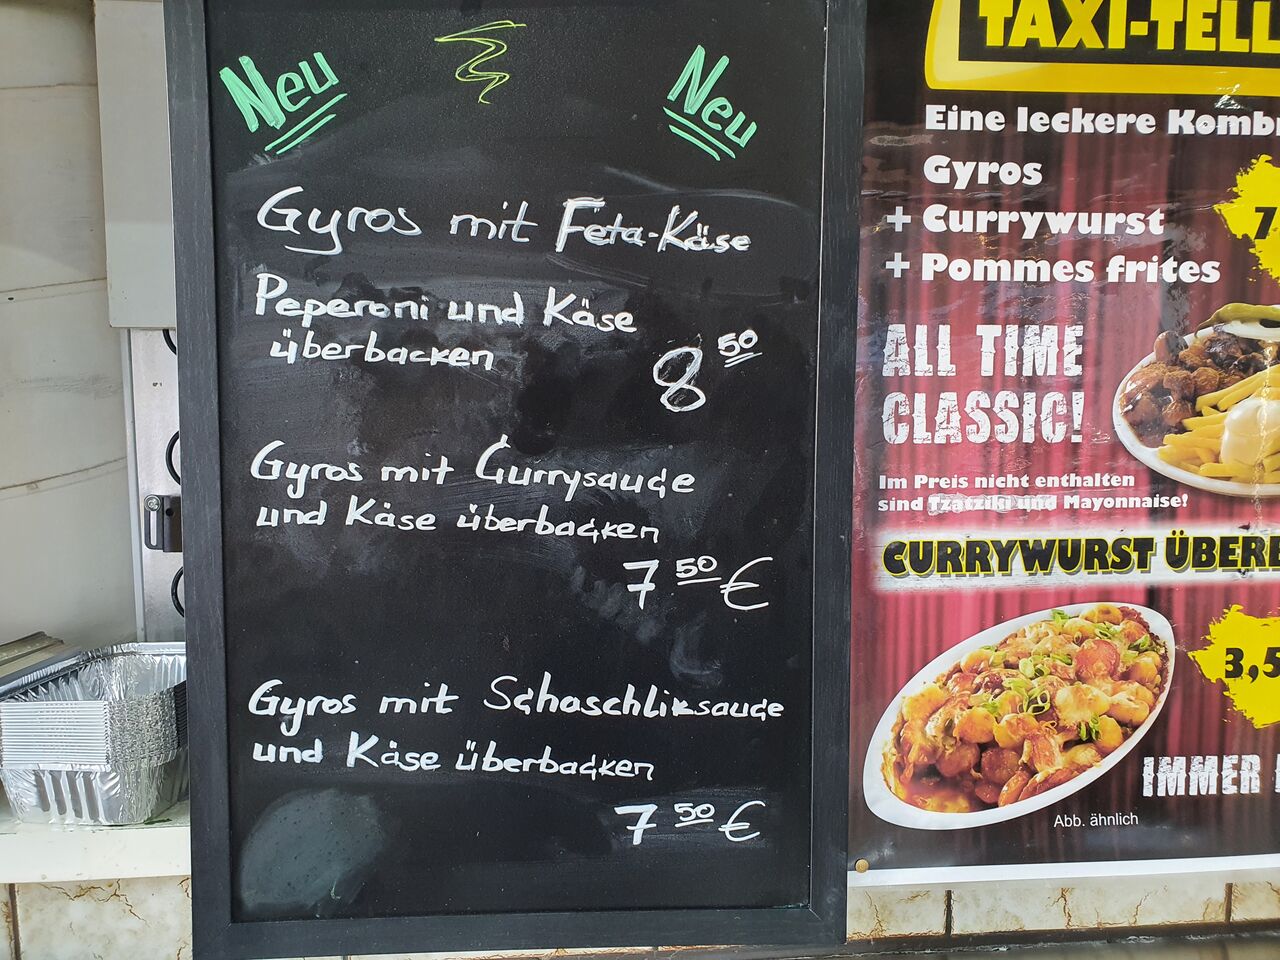 Neu
Neu
Gyros mit Feta-Käse
Peperoni und Käse
überbacken
8 50
Gyros mit Currysauce
und Käse überbacken
7 50 €
Gyros mit Schaschliksauce
und Käse überbacken
7 50 €
TAXI-TELL
Eine leckere Kombi
Gyros
+ Currywurst
+ Pommes frites
7
ALL TIME
CLASSIC!
Im Preis nicht enthalten
sind Tzatziki und Mayonnaise!
CURRYWURST ÜBER
3,5
IMMER
Abb. ähnlich